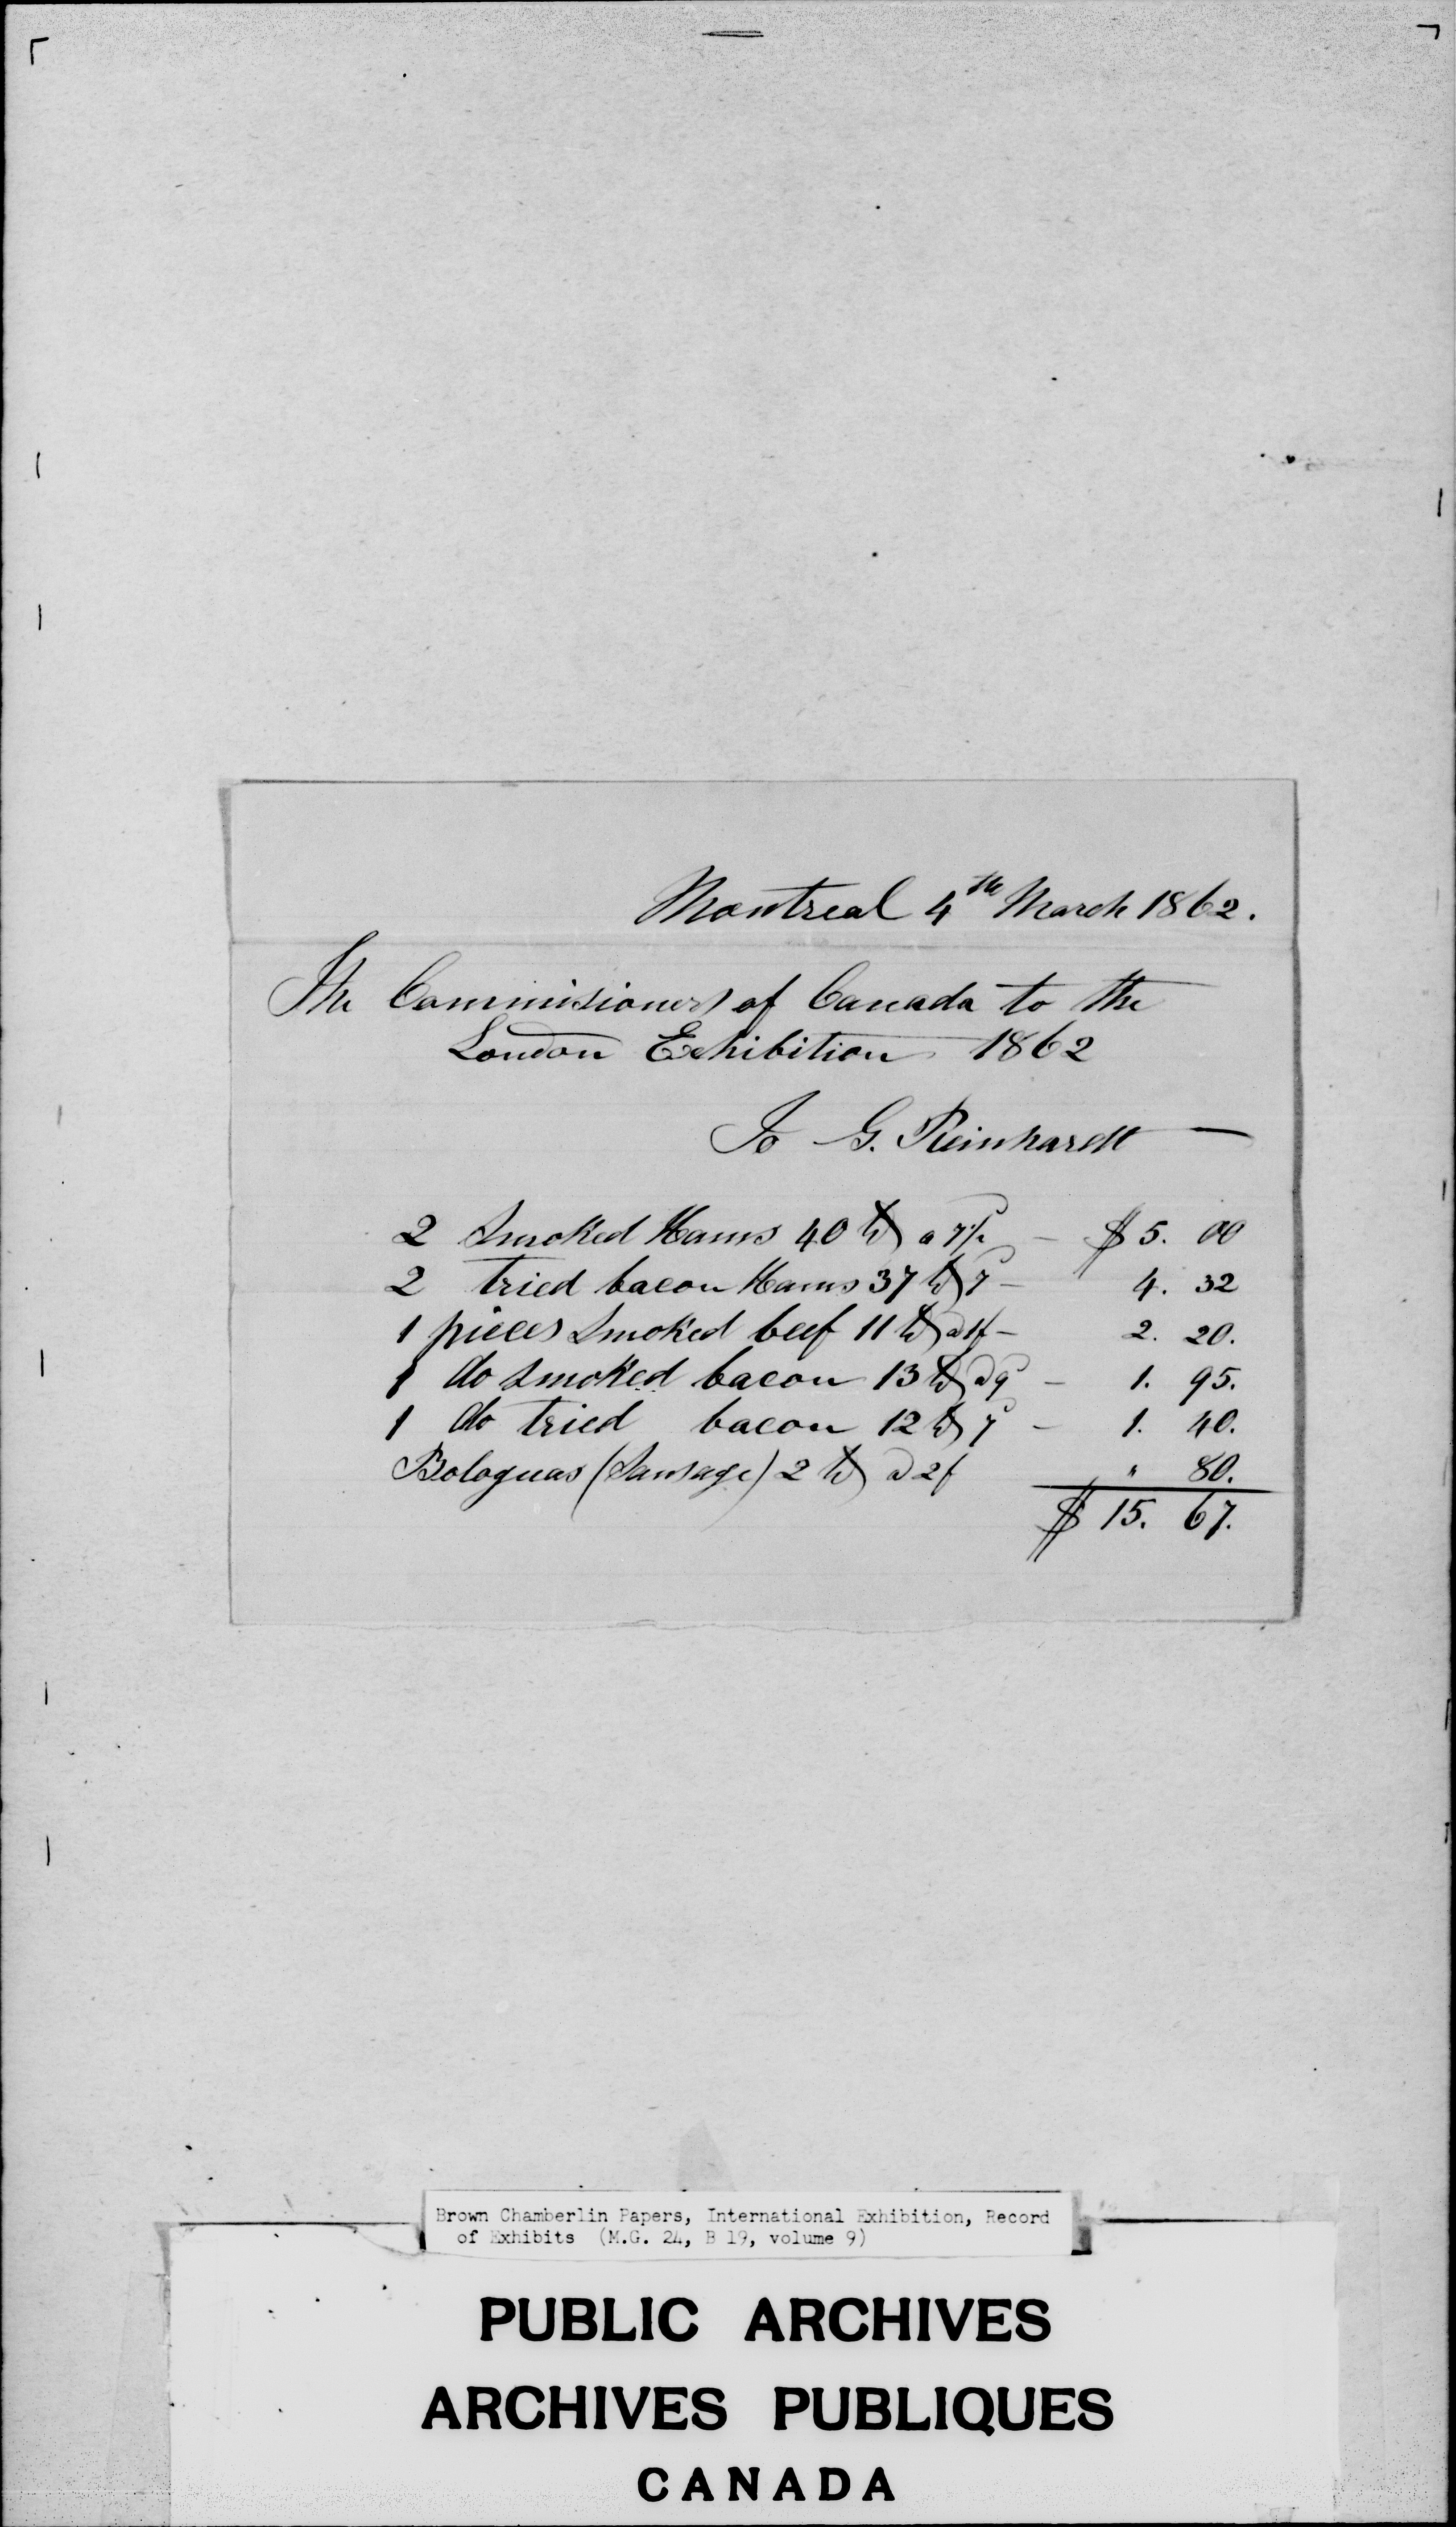 Montreal 4th March 1862.
The Commisioners of Canada to the
London Exhibition 1862
To G. Reinhardt
2 Smoked Hams 40 lb a 7½ - $5. 00
2 tried bacon Hams 37 lb 7d - 4. 32
1 pieces Smoked beef 11 lb a 1/ - 2. 20.
1 do smoked bacon 13 lb a 9d - 1. 95.
1 do tried bacon 12 lb 7d - 1. 40.
Bolognas (Sausage) 2 lb a 2/ " 80.
$ 15. 67.
Brown Chamberlin Papers, International Exhibition, Record
of Exhibits (M.G. 24, B 19, volume 9)
PUBLIC ARCHIVES
ARCHIVES PUBLIQUES
CANADA